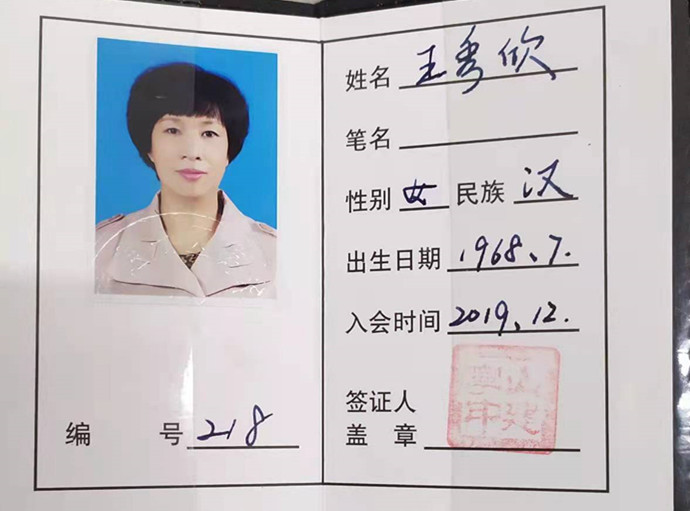 编 号 218
姓名 王秀欣
笔名
性别 女 民族 汉
出生日期 1968.7.
入会时间 2019.12.
签证人
盖 章